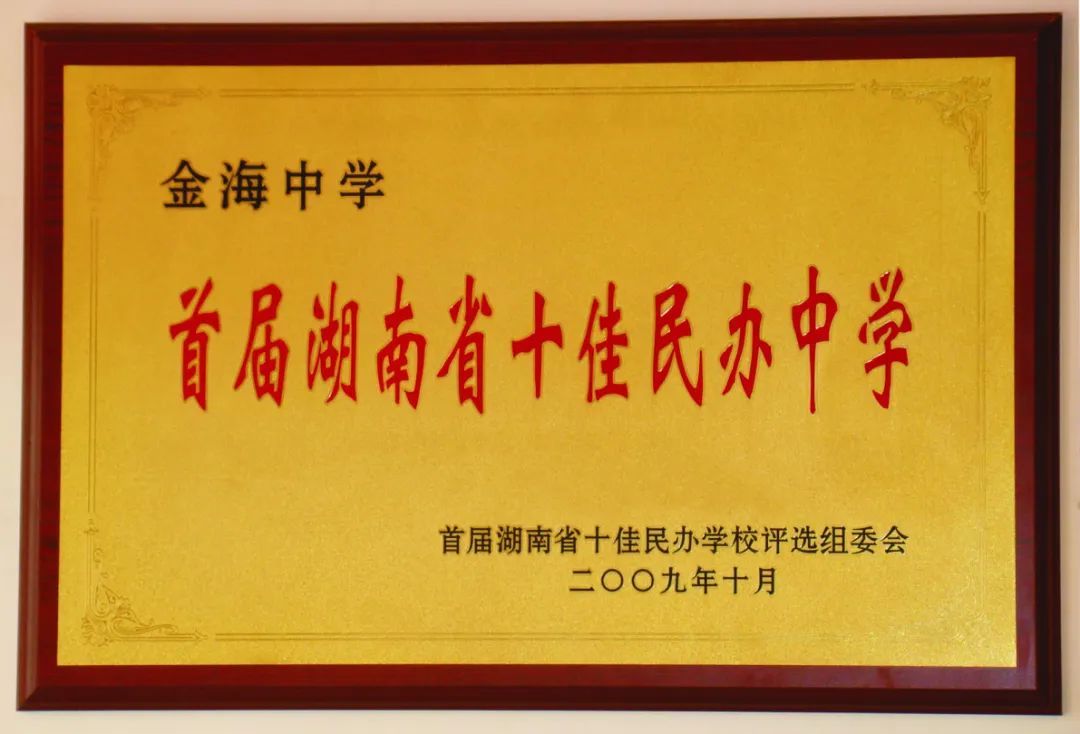 金海中学
首届湖南省十佳民办中学
首届湖南省十佳民办学校评选组委会
二〇〇九年十月